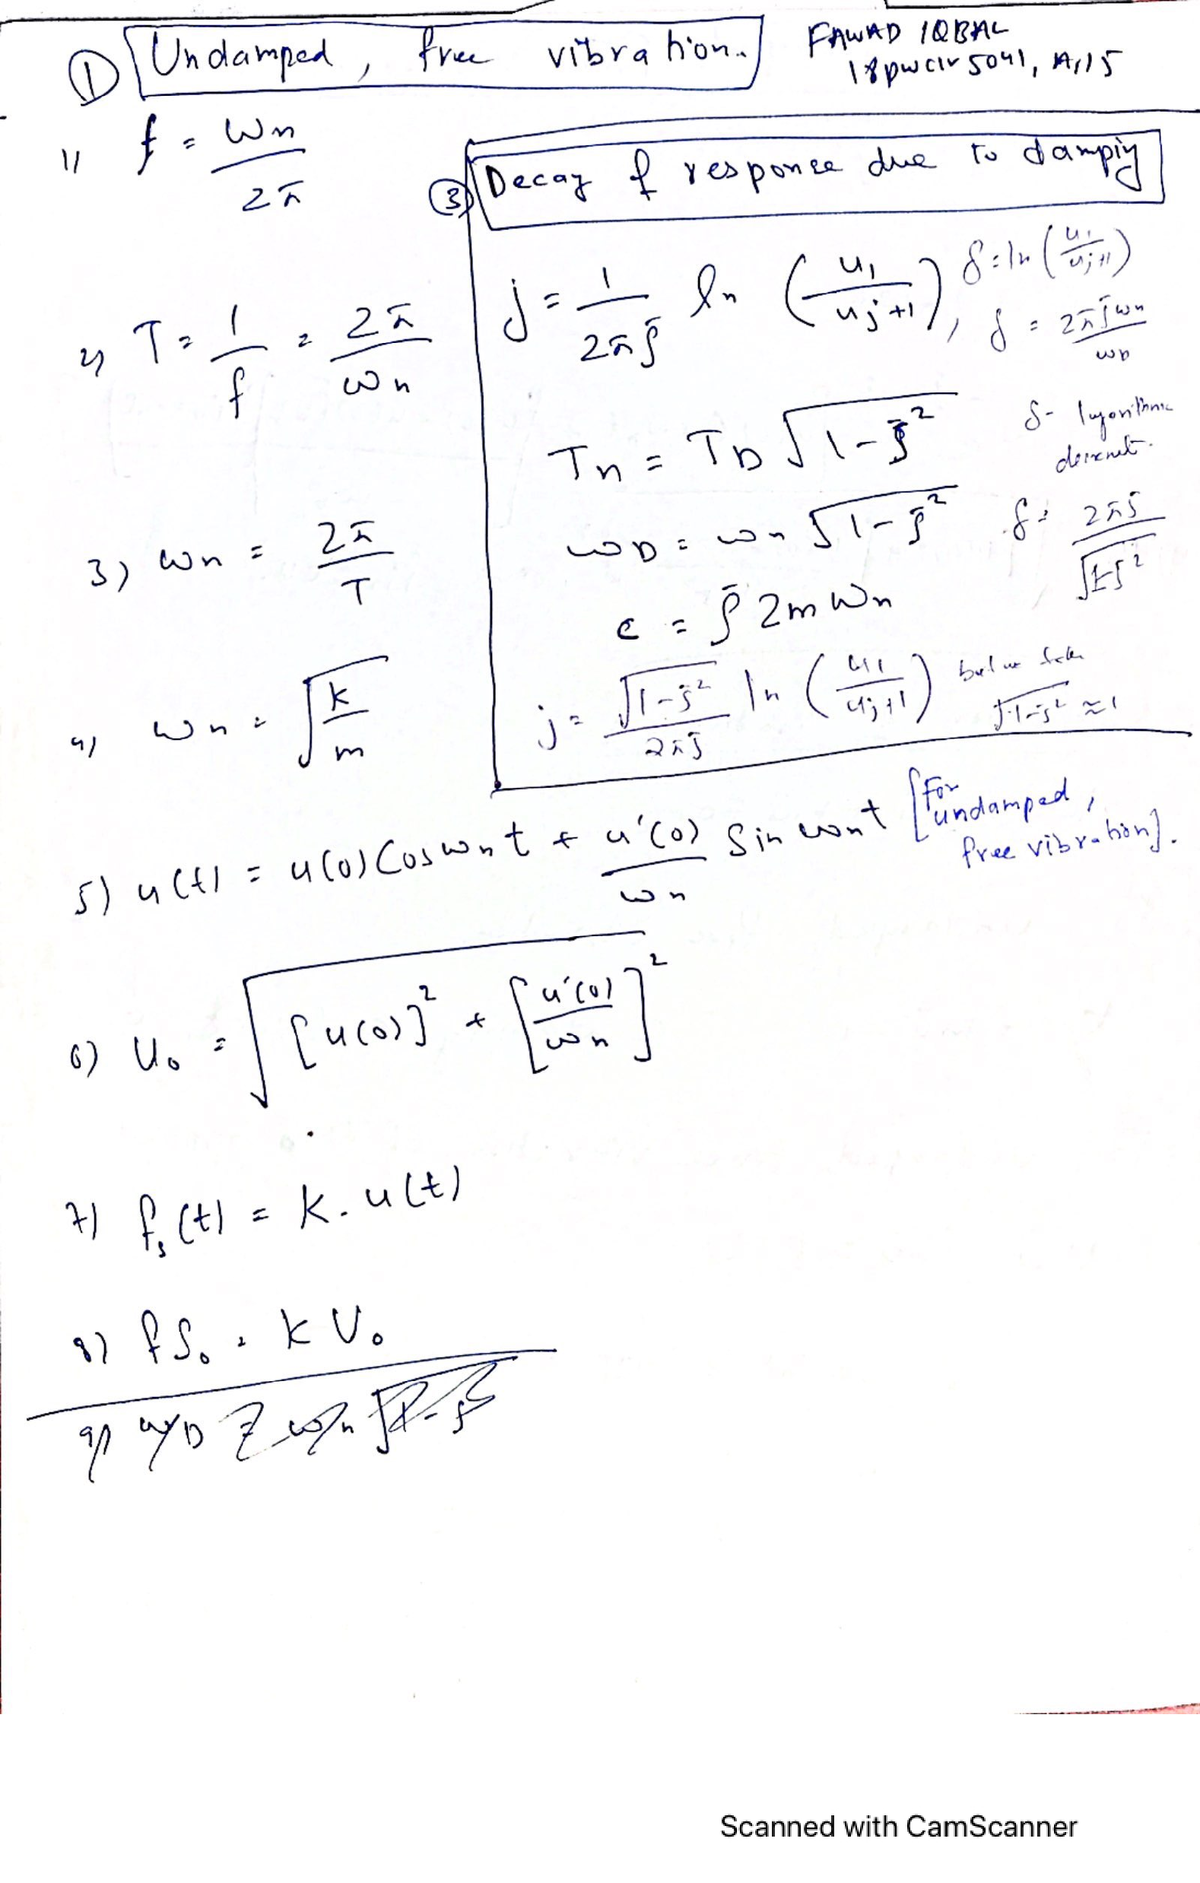 ① Undamped, free vibration.
FAWAD IQBAL
18pwciv5041, A,15
1) f = ωn / 2π
2) T = 1/f = 2π / ωn
3) ωn = 2π / T
4) ωn = √(k/m)
③ Decay of response due to damping
j = 1/(2πζ) ln (u1 / uj+1), δ = ln (u1 / uj+1)
δ = 2πζωn / ωD
Tn = TD √(1-ζ²)
δ- logarithmic
ωD = ωn √(1-ζ²)
δ = 2πζ / √(1-ζ²)
c = ζ 2m ωn
j = √(1-ζ²) / 2πζ ln (u1 / uj+1) but we
√(1-ζ²) ≈ 1
5) u(t) = u(0) Cos ωnt + u'(0)/ωn Sin ωnt [For undamped, free vibration].
6) U₀ = √([u(0)]² + [u'(0)/ωn]²)
7) fs(t) = k. u(t)
8) fS₀ = k U₀
9) ωD = ωn √(1-ζ²)
Scanned with CamScanner